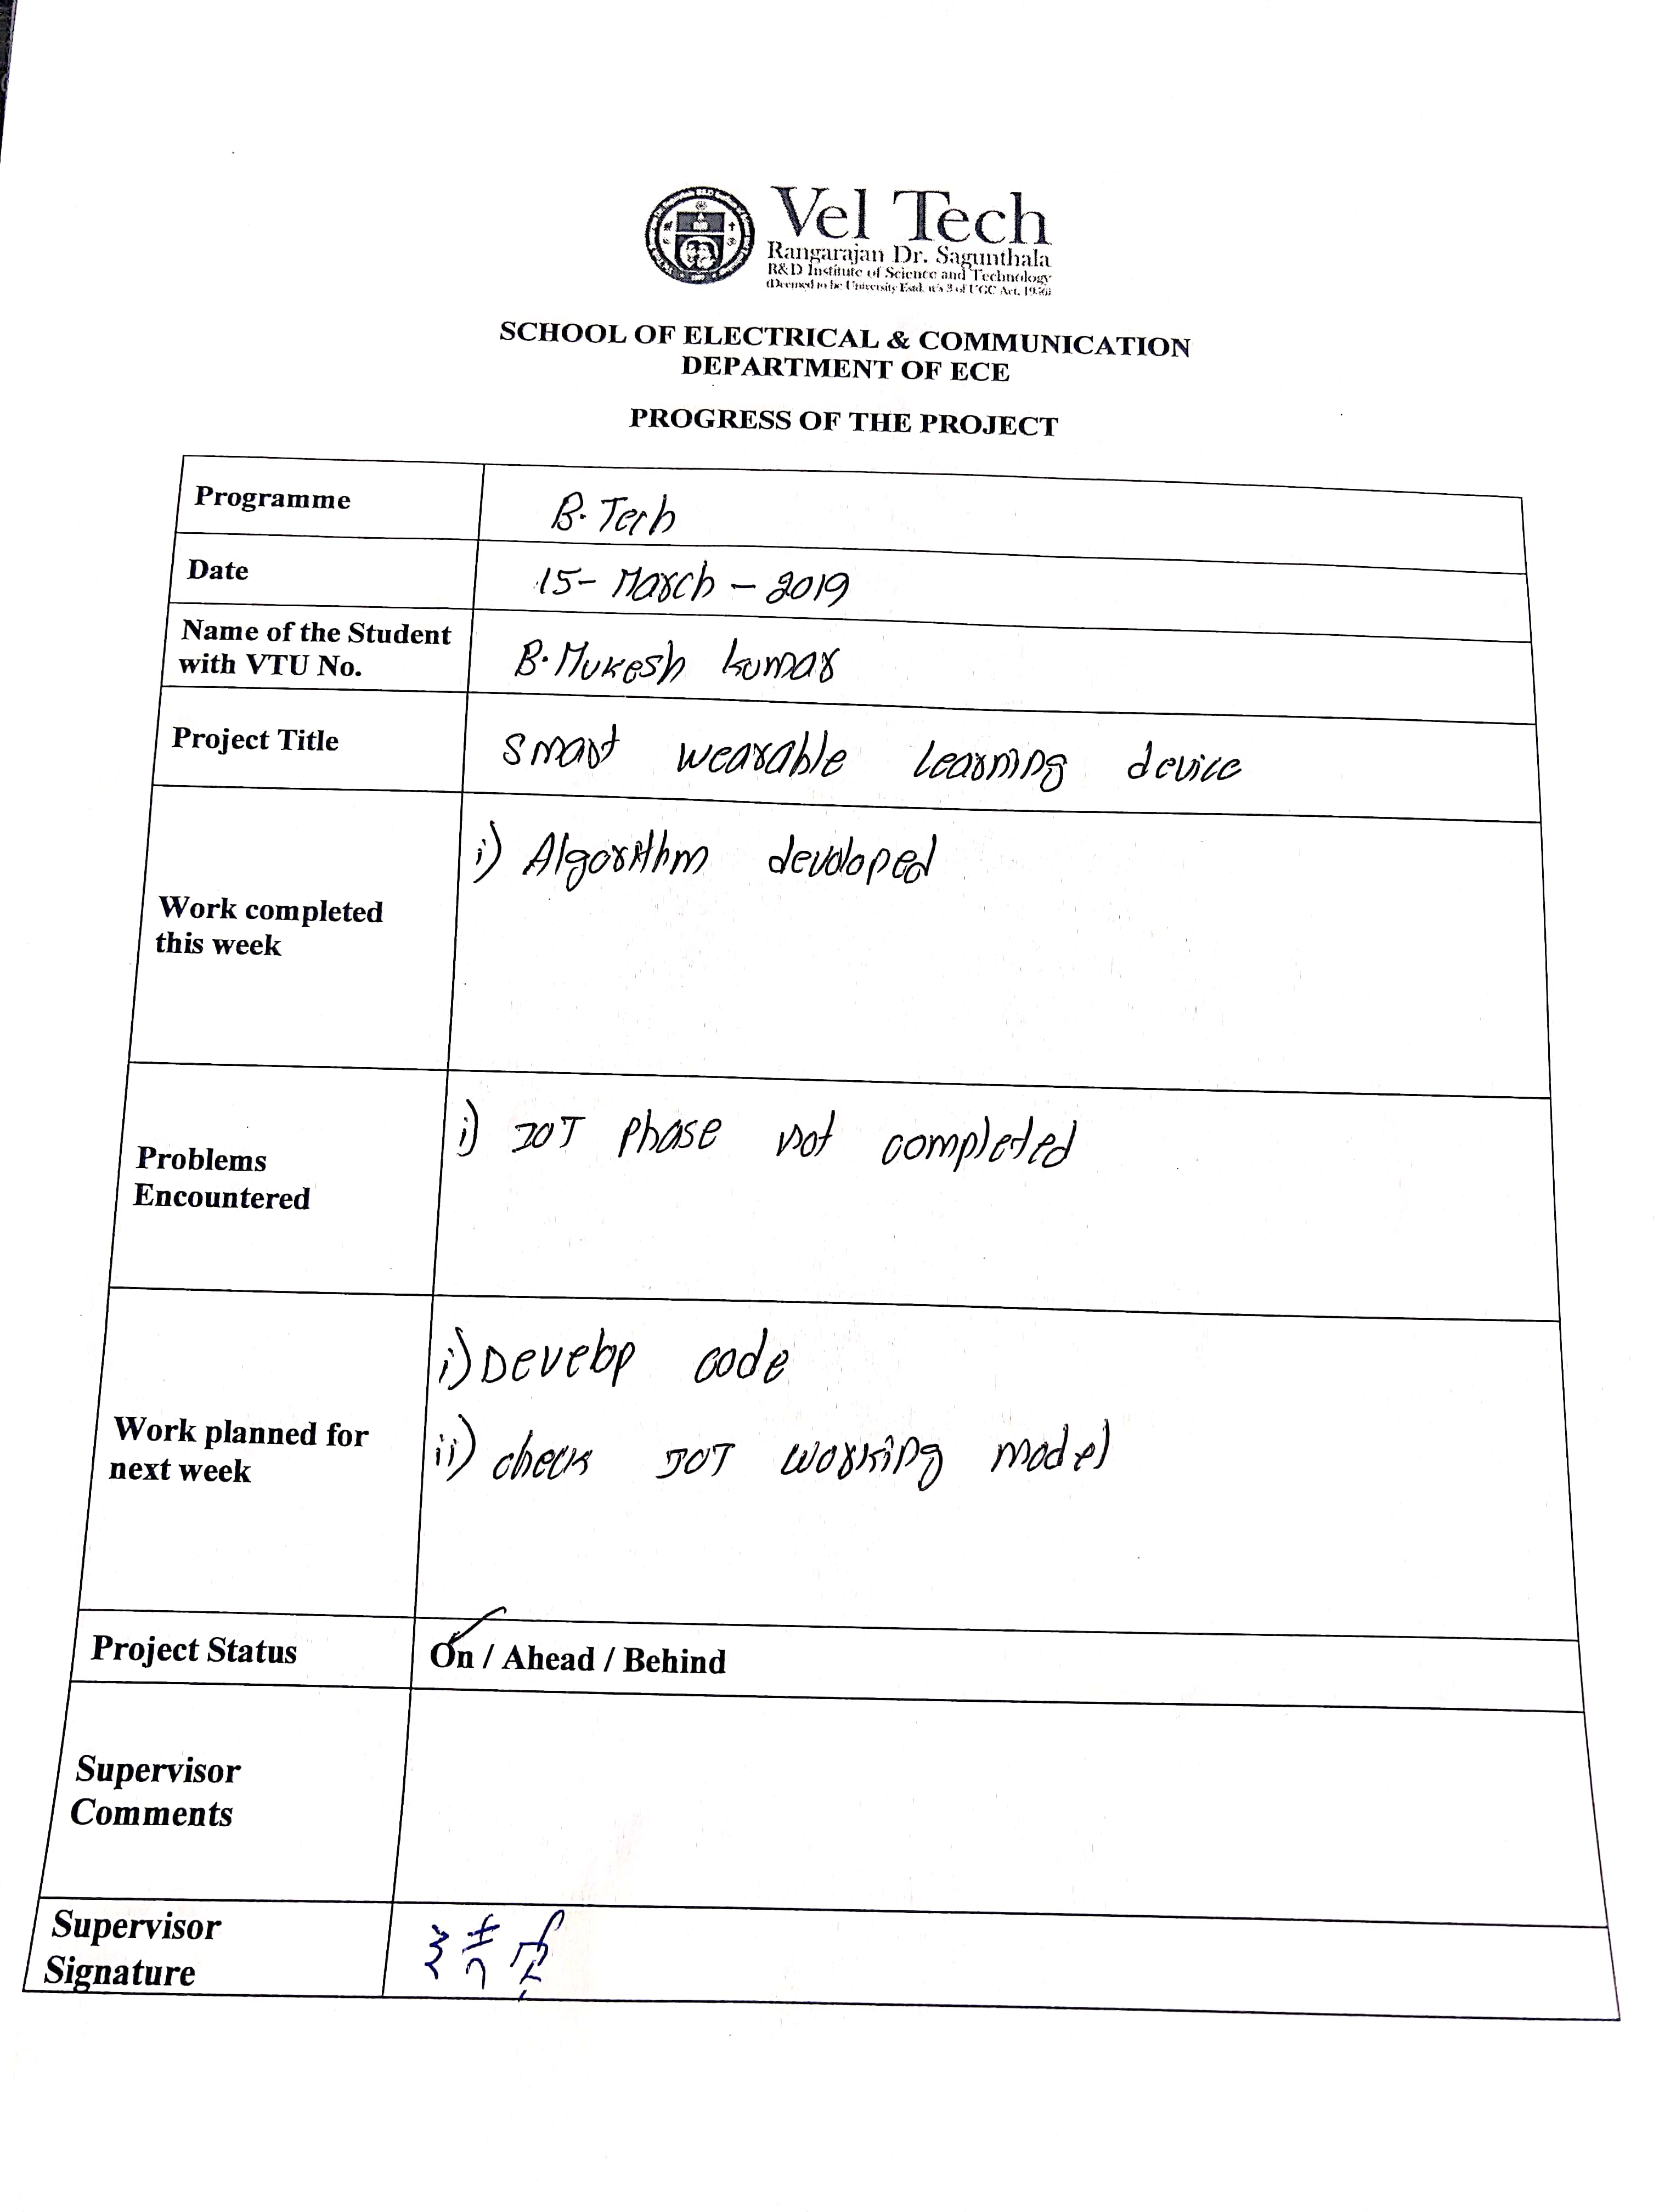 Vel Tech
Rangarajan Dr. Sagunthala
R&D Institute of Science and Technology
(Deemed to be University Estd. u/s 3 of UGC Act, 1956)
SCHOOL OF ELECTRICAL & COMMUNICATION
DEPARTMENT OF ECE
PROGRESS OF THE PROJECT
Programme
B. Tech
Date
15- March - 2019
Name of the Student
with VTU No.
B. Mukesh kumar
Project Title
Smart wearable learning device
Work completed
this week
i) Algorithm developed
Problems
Encountered
i) IOT phase not completed
Work planned for
next week
i) Develop code
ii) check IOT working model
Project Status
On / Ahead / Behind
Supervisor
Comments
Supervisor
Signature